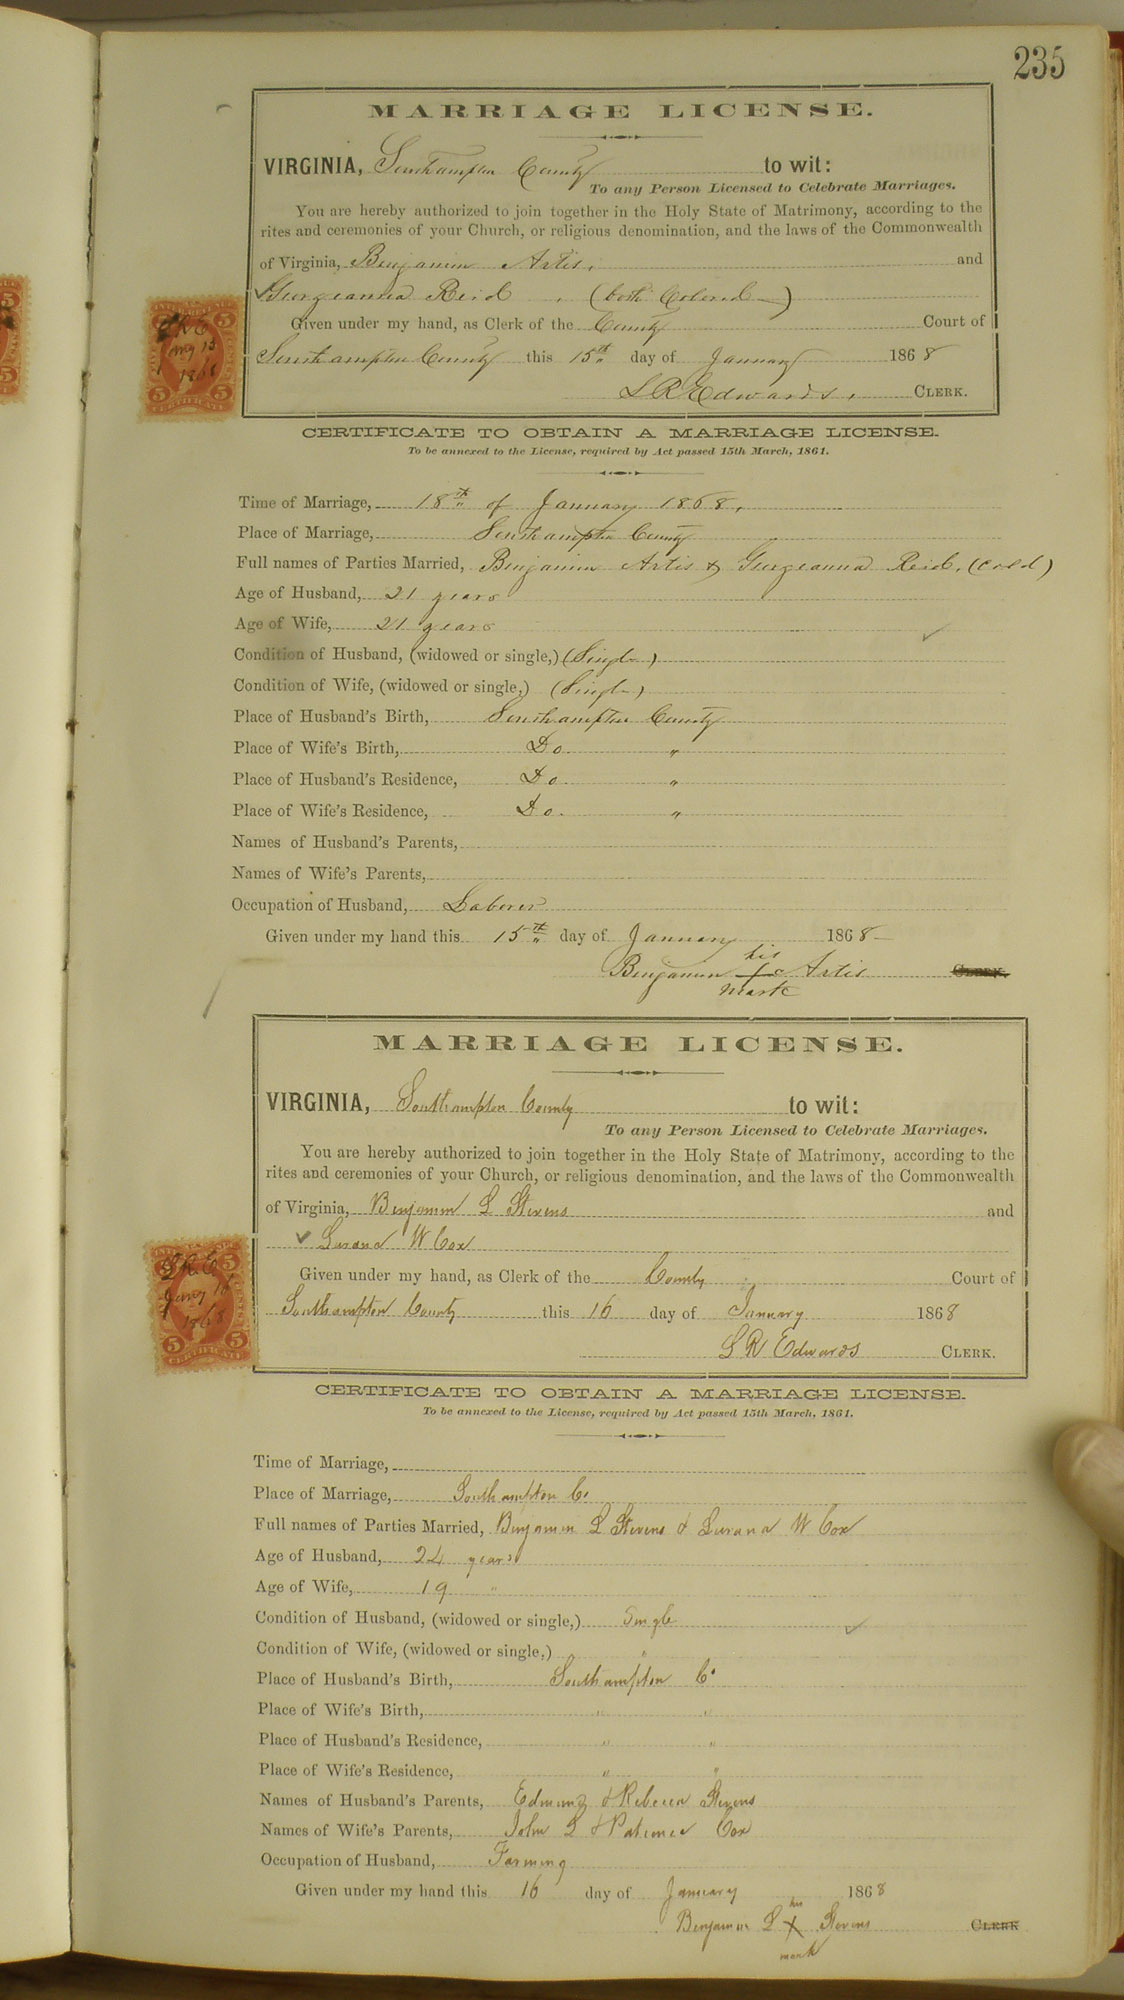 235
MARRIAGE LICENSE.
VIRGINIA, Southampton County to wit:
To any Person Licensed to Celebrate Marriages.
You are hereby authorized to join together in the Holy State of Matrimony, according to the
rites and ceremonies of your Church, or religious denomination, and the laws of the Commonwealth
of Virginia, Benjamin Artis, and
Georgeanna Reid (both Colored)
Given under my hand, as Clerk of the County Court of
Southampton County this 15th day of January 1868
L R Edwards, CLERK.
CERTIFICATE TO OBTAIN A MARRIAGE LICENSE.
To be annexed to the License, required by Act passed 15th March, 1861.
Time of Marriage, 18th of January 1868,
Place of Marriage, Southampton County
Full names of Parties Married, Benjamin Artis & Georgeanna Reid, (cold)
Age of Husband, 21 years
Age of Wife, 21 years
Condition of Husband, (widowed or single,) (Single)
Condition of Wife, (widowed or single,) (Single)
Place of Husband's Birth, Southampton County
Place of Wife's Birth, Do. "
Place of Husband's Residence, Do. "
Place of Wife's Residence, Do. "
Names of Husband's Parents,
Names of Wife's Parents,
Occupation of Husband, Laborer
Given under my hand this 15th day of January 1868
his
Benjamin X Artis CLERK.
mark
MARRIAGE LICENSE.
VIRGINIA, Southampton County to wit:
To any Person Licensed to Celebrate Marriages.
You are hereby authorized to join together in the Holy State of Matrimony, according to the
rites and ceremonies of your Church, or religious denomination, and the laws of the Commonwealth
of Virginia, Benjamin L Stevens and
Lurana W Cox
Given under my hand, as Clerk of the County Court of
Southampton County this 16 day of January 1868
L R Edwards CLERK.
L R E
Jany 16
1868
CERTIFICATE TO OBTAIN A MARRIAGE LICENSE.
To be annexed to the License, required by Act passed 15th March, 1861.
Time of Marriage,
Place of Marriage, Southampton Co
Full names of Parties Married, Benjamin L Stevens & Lurana W Cox
Age of Husband, 24 years
Age of Wife, 19 "
Condition of Husband, (widowed or single,) Single
Condition of Wife, (widowed or single,) "
Place of Husband's Birth, Southampton Co
Place of Wife's Birth, " "
Place of Husband's Residence, " "
Place of Wife's Residence, " "
Names of Husband's Parents, Edmund & Rebecca Stevens
Names of Wife's Parents, John L & Patience Cox
Occupation of Husband, Farming
Given under my hand this 16 day of January 1868
his
Benjamin L X Stevens CLERK
mark